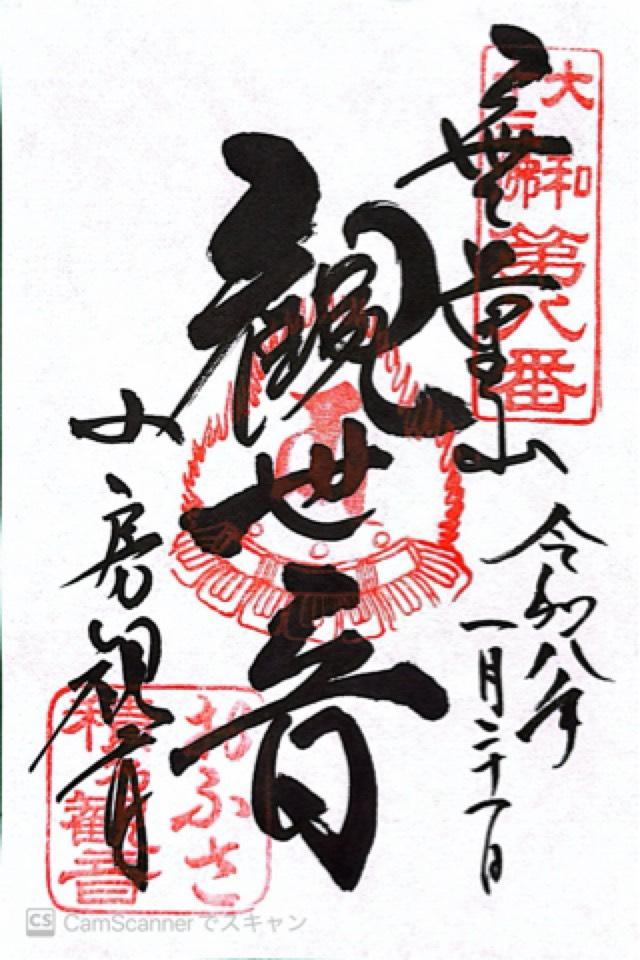 大和
十三佛
第八番
無量山
令和八年
一月二十一日
観世音
小房観音
おふさ
観音
CS CamScanner でスキャン